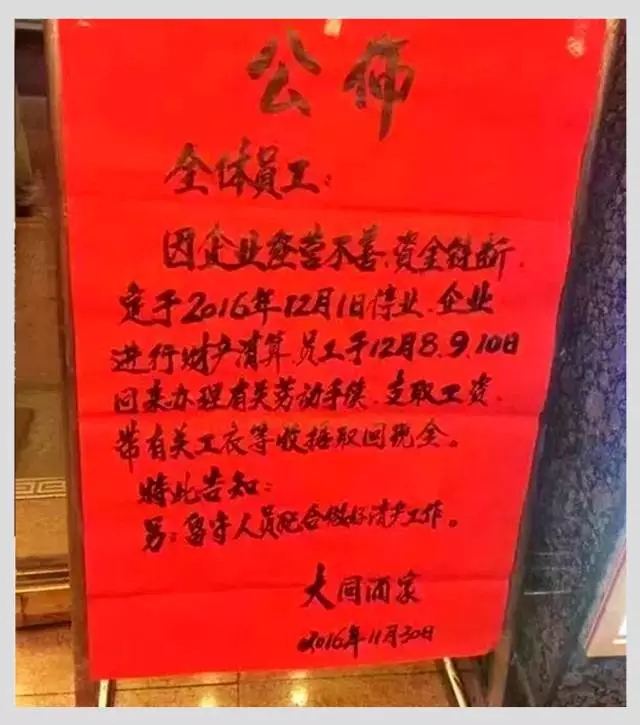 公佈
全体员工：
因企业经营不善、资金链断，
定于2016年12月1日停业、企业
进行财产清算，员工于12月8.9.10日
回来办理有关劳动手续、支取工资，
带有关工衣等收据取回现金。
特此告知：
另：留守人员配合做好清产工作。
大同酒家
2016年11月30日